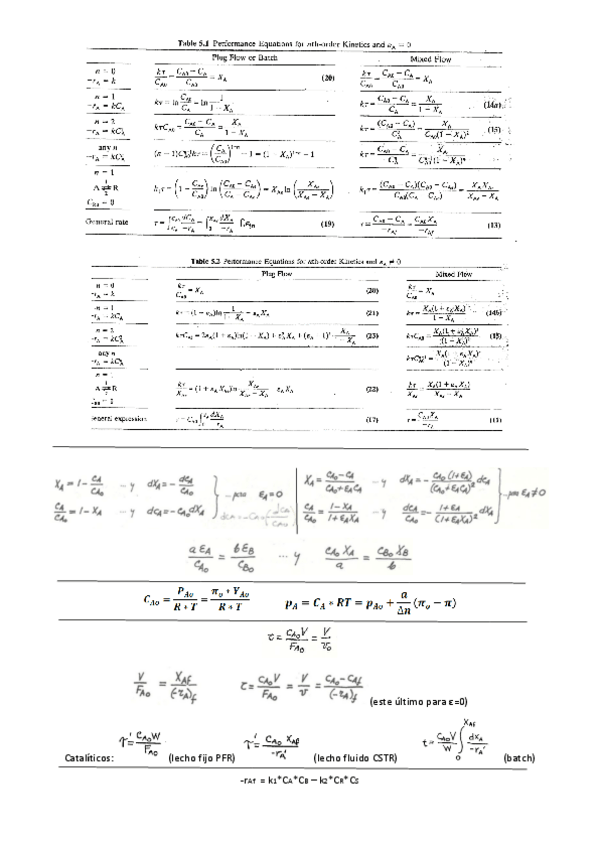 Table 5.1 Performance Equations for nth-order Kinetics and εA = 0
Plug Flow or Batch Mixed Flow
n = 0
-rA = k
kτ/CA0 = (CA0 − CA)/CA0 = XA (20)
kτ/CA0 = (CA0 − CA)/CA0 = XA
n = 1
-rA = kCA
kτ = ln CA0/CA = ln 1/(1 − XA)
kτ = (CA0 − CA)/CA = XA/(1 − XA) (14a)
n = 2
-rA = kC²A
kτCA0 = (CA0 − CA)/CA = XA/(1 − XA)
kτ = (CA0 − CA)/C²A = XA/CA0(1 − XA)² (15)
any n
-rA = kCⁿA
(n − 1)Cⁿ⁻¹A0 kτ = (CA/CA0)¹⁻ⁿ − 1 = (1 − XA)¹⁻ⁿ − 1
kτ = (CA0 − CA)/CⁿA = XA/Cⁿ⁻¹A0(1 − XA)ⁿ
n = 1
A ⇌ R
CR0 = 0
k1τ = (1 − CAe/CA0) ln (CA0 − CAe)/(CA − CAe) = XAe ln (XAe/(XAe − XA))
k1τ = (CA0 − CA)(CA0 − CAe)/CA0(CA − CAe) = XA XAe/(XAe − XA)
General rate
(19)
τ = (CA0 − CA)/-rAf = CA0XA/-rAf (13)
Table 5.2 Performance Equations for nth-order Kinetics and εA ≠ 0
Plug Flow Mixed Flow
n = 0
-rA = k
kτ/CA0 = XA (20)
kτ/CA0 = XA
n = 1
-rA = kCA
kτ = (1 + εA) ln 1/(1 − XA) − εAXA (21)
kτ = XA(1 + εAXA)/(1 − XA) (14b)
n = 2
-rA = kC²A
kτCA0 = 2εA(1 + εA) ln(1 − XA) + ε²AXA + (εA + 1)² · XA/(1 − XA) (23)
kτCA0 = XA(1 + εAXA)²/(1 − XA)² (15)
any n
-rA = kCⁿA
kτCⁿ⁻¹A0 = XA(1 + εAXA)ⁿ/(1 − XA)ⁿ
n =
A ⇌ R
kτ/XAe = (1 + εAXAe) ln XAe/(XAe − XA) − εAXA (22)
kτ/XAe = XA(1 + εAXA)/(XAe − XA)
General expression
τ = CA0 ∫ dXA/-rA (17)
τ = CA0XA/-rA (11)
XA = 1 − CA/CAo ... y dXA = − dCA/CAo
CA/CAo = 1 − XA ... y dCA = −CAo dXA
... para εA = 0
XA = (CAo − CA)/(CAo + εACA) ... y dXA = − CAo(1 + εA)/(CAo + εACA)² dCA
CA/CAo = (1 − XA)/(1 + εAXA) ... y dCA/CAo = − (1 + εA)/(1 + εAXA)² dXA
... para εA ≠ 0
a εA/CAo = b εB/CBo ... y CAo XA/a = CBo XB/b
CAo = PAo/(R * T) = πo * YAo/(R * T) pA = CA * RT = pAo + a/Δn (πo − π)
τ = CAoV/FAo = V/vo
V/FAo = XAf/(−rA)f τ = CAoV/FAo = V/v = (CAo − CAf)/(−rA)f (este último para ε=0)
Catalíticos: τ' = CAoW/FAo (lecho fijo PFR) τ' = CAo XAf/−rA' (lecho fluido CSTR) t = CAoV/W ∫₀^XAf dXA/−rA' (batch)
-rAf = k1*CA*CB − k2*CR*CS